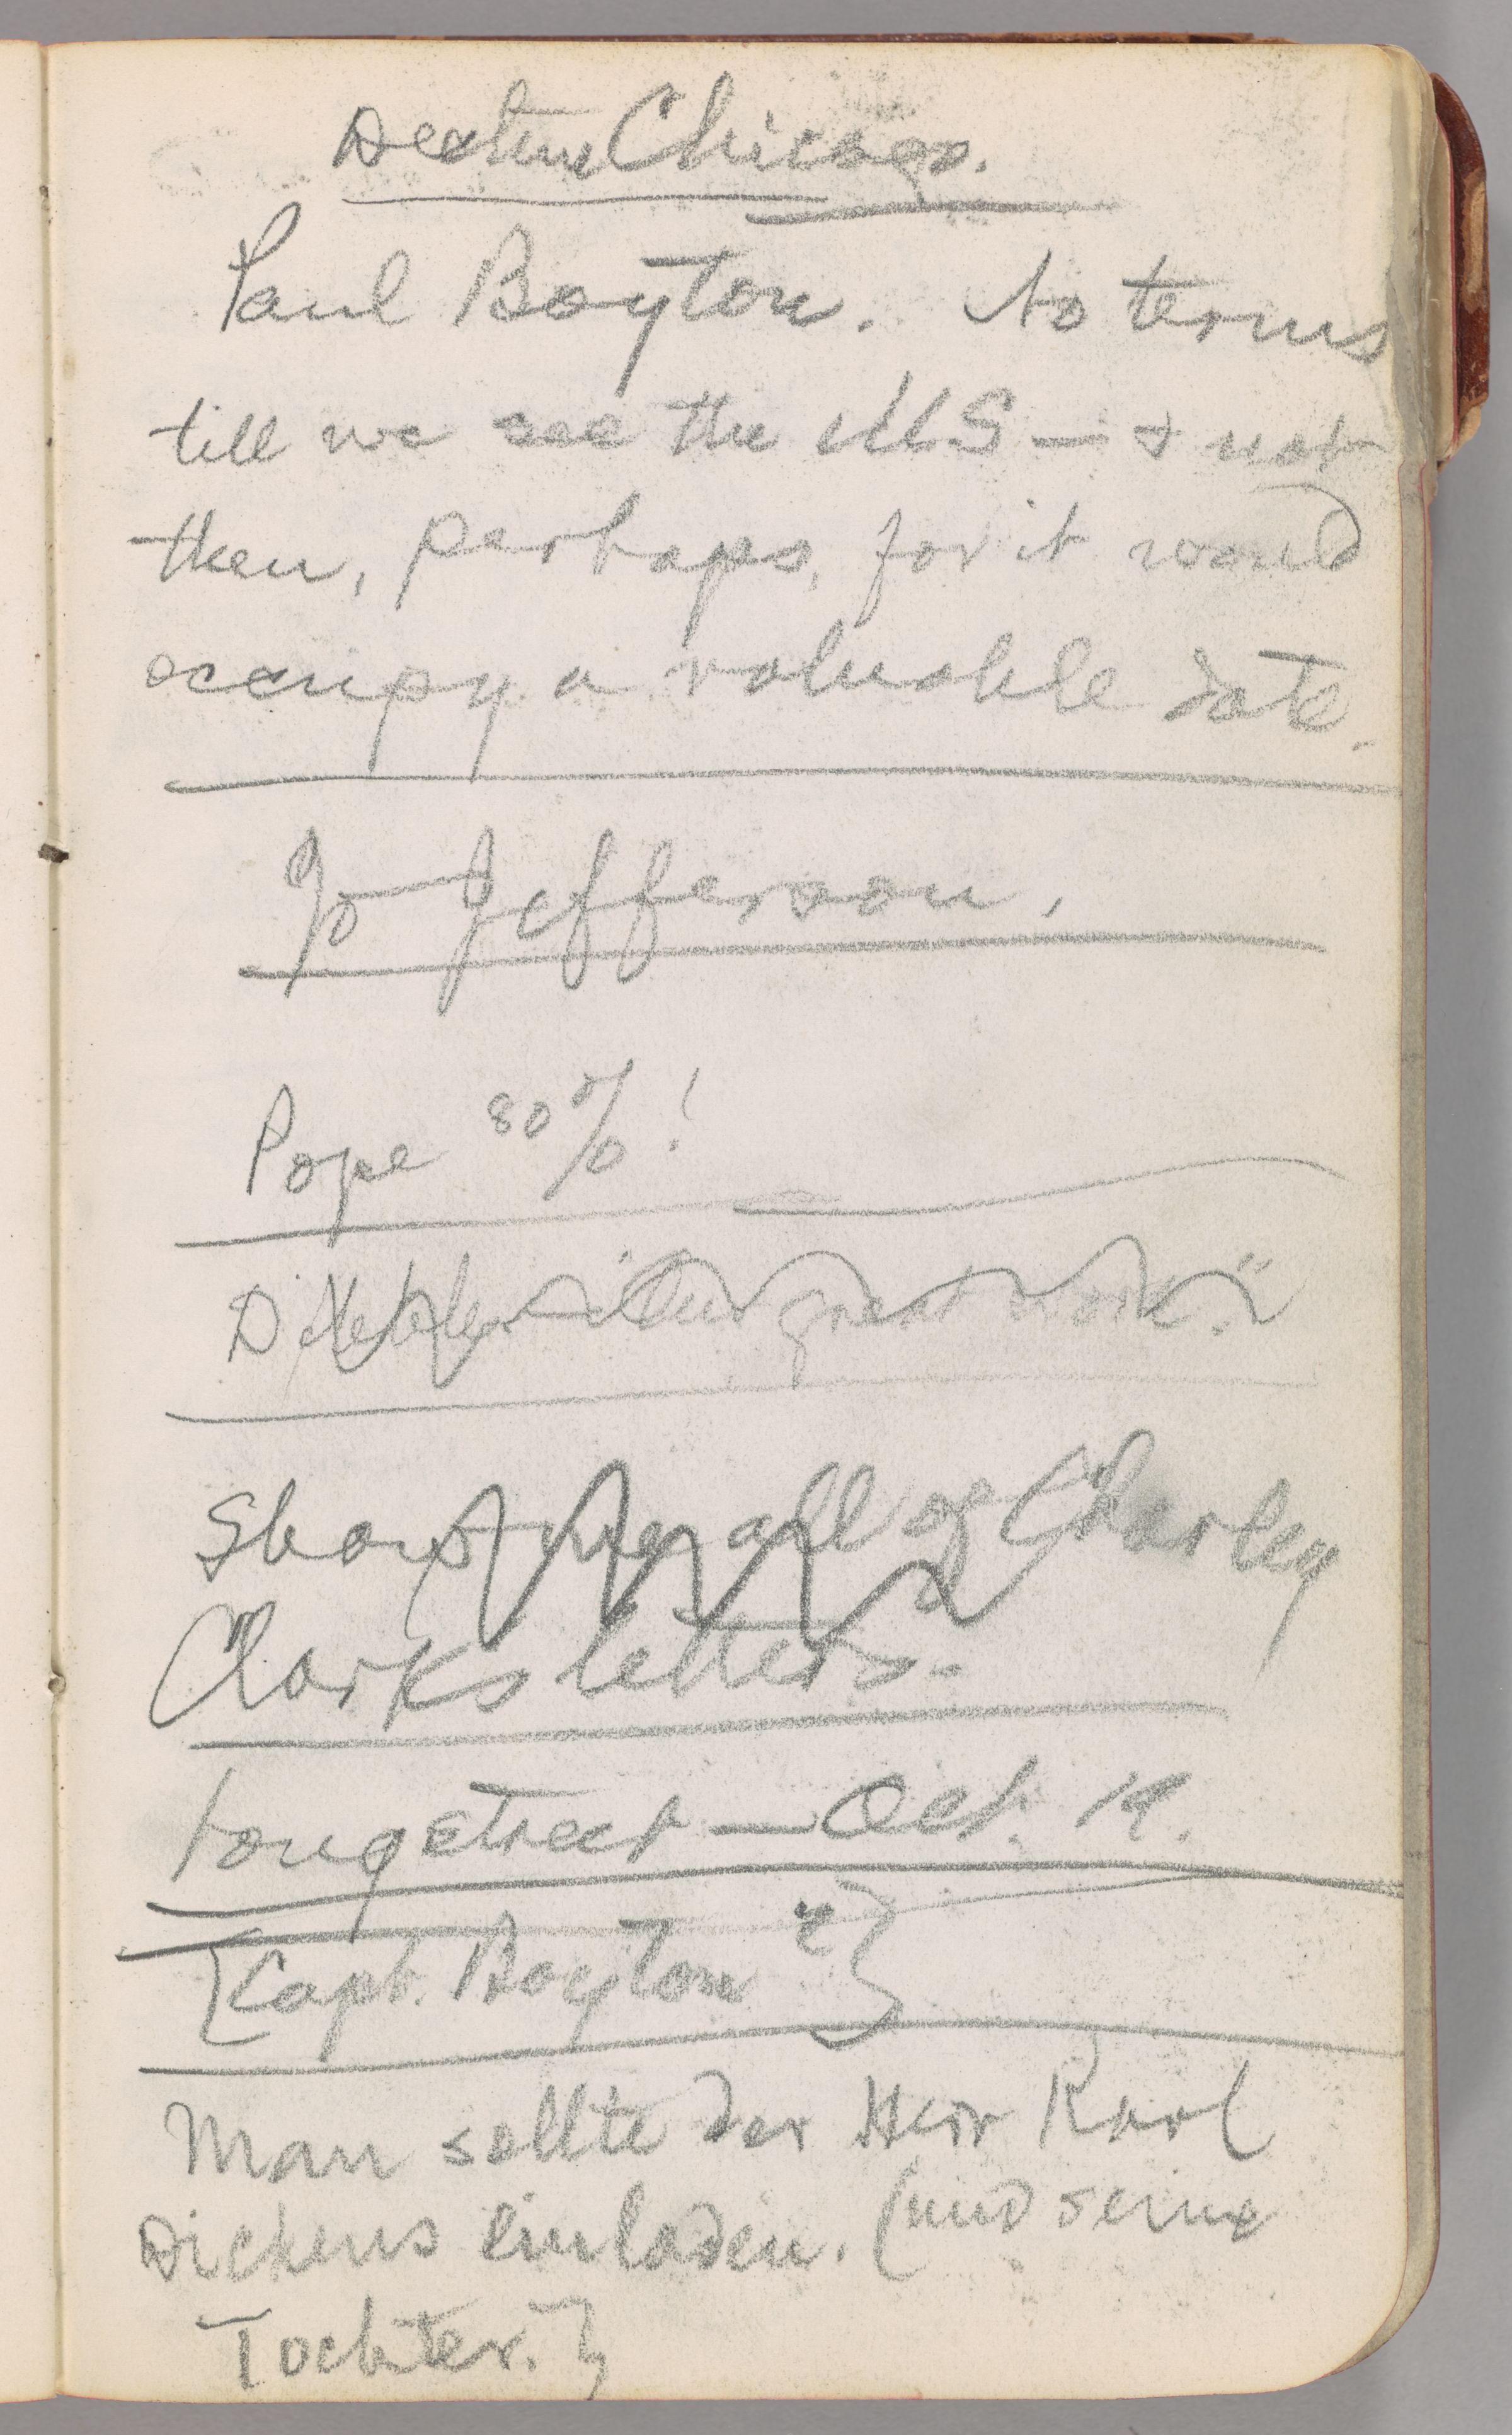 Chicago.
Paul Boyton. No terms
till we see the MS — & not
then, perhaps, for it would
occupy a valuable date.
Jo Jefferson,
Pope 80%!
"Our great work."
Shove up all of Charley
Clark's letters.
Longstreet — Oct. 19.
[Capt. Boyton
Man sollte der Herr Karl
Dickens einladen. (und seine
Tochter.}